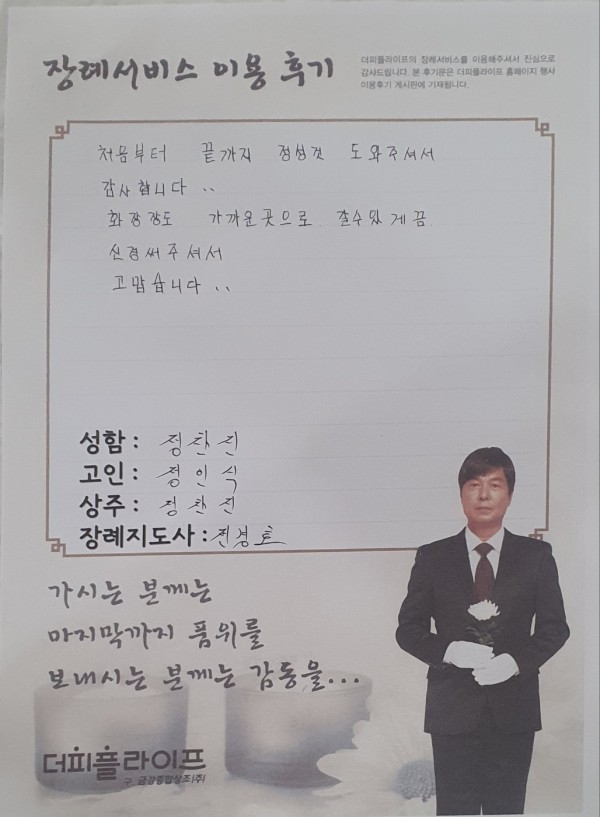 장례서비스 이용 후기
더피플라이프의 장례서비스를 이용해주셔서 진심으로
감사드립니다. 본 후기문은 더피플라이프 홈페이지 행사
이용후기 게시판에 기재됩니다.
처음부터 끝까지 정성껏 도와주셔서
감사합니다 ..
화장장도 가까운곳으로 갈수있게끔
신경써주셔서
고맙습니다 ..
성함 : 정찬진
고인 : 정인식
상주 : 정찬진
장례지도사 : 전경호
가시는 분께는
마지막까지 품위를
보내시는 분께는 감동을...
더피플라이프
구. 금강종합상조(주)